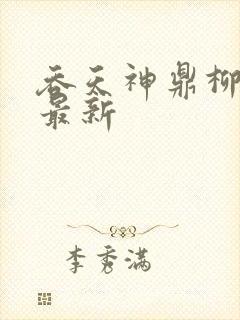 吞天神鼎柳
最新
李秀满